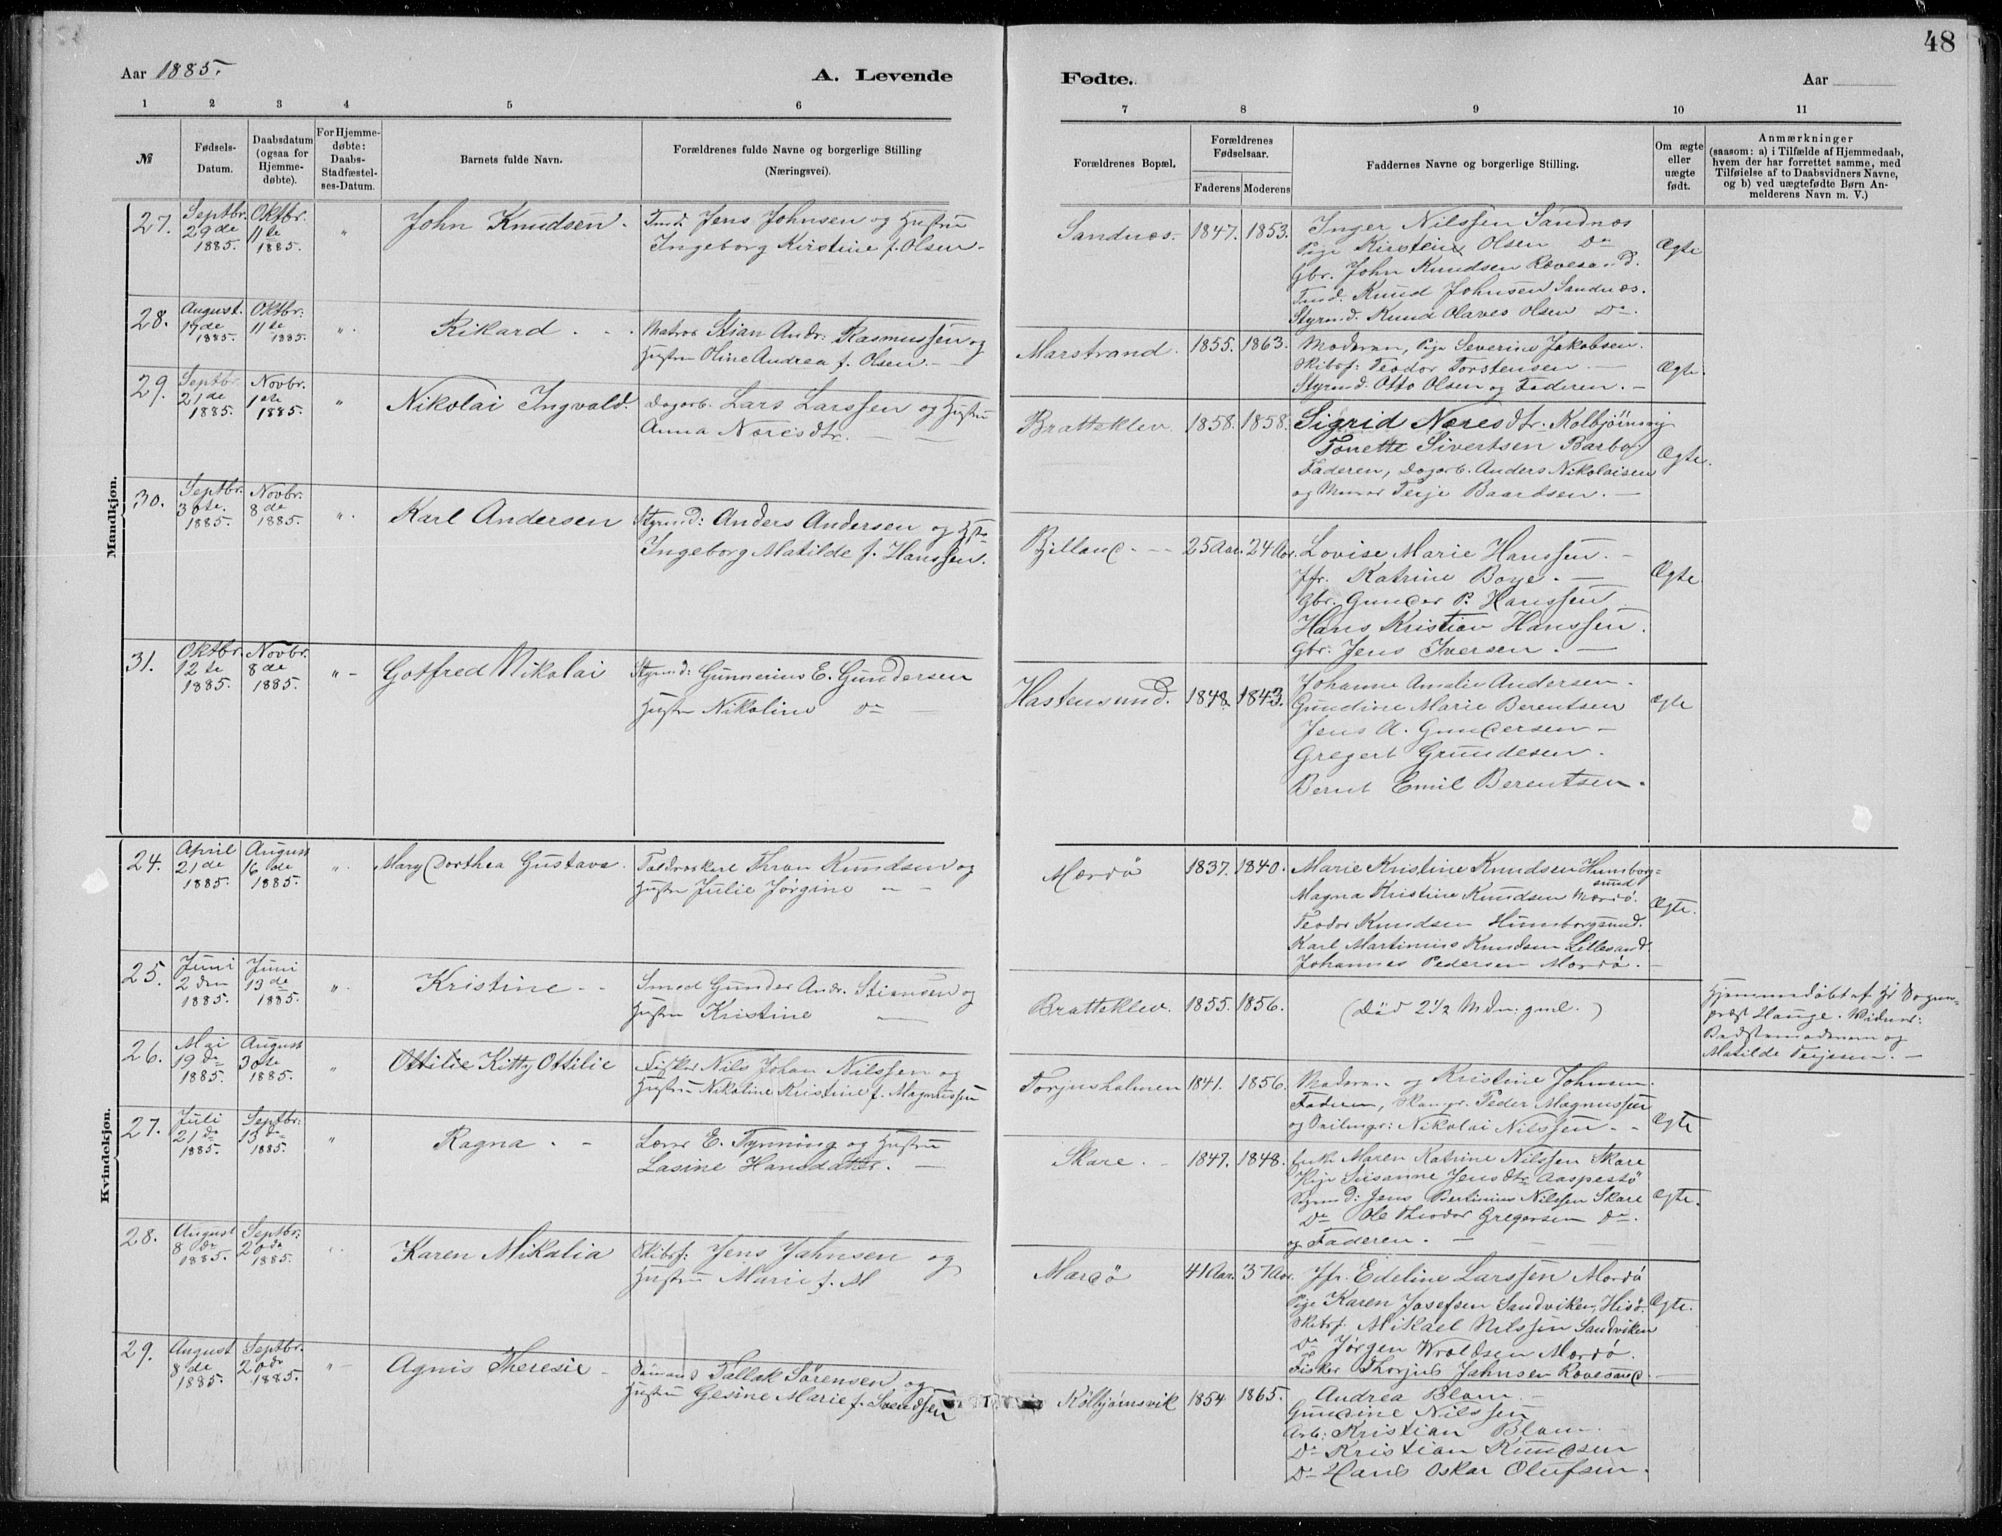 48
Aar 1885.
A. Levende
Fødte.
Aar
1 2 3 4 5 6
7 8 9 10 11
№
Fødsels-
Datum.
Daabsdatum
(ogsaa for
Hjemme-
døbte).
For Hjemme-
døbte:
Daabs-
Stadfæstel-
ses-Datum.
Barnets fulde Navn.
Forældrenes fulde Navne og borgerlige Stilling
(Næringsvei).
Forældrenes Bopæl.
Forældrenes
Fødselsaar.
Faderens Moderens
Faddernes Navne og borgerlige Stilling.
Om ægte
eller
uægte
født.
Anmærkninger
(saasom: a) i Tilfælde af Hjemmedaab,
hvem der har forrettet samme, med
Tilføielse af to Daabsvidners Navne,
og b) ved uægtefødte Børn An-
melderens Navn m. V.)
Mandkjøn.
27.
Septbr.
29de
1885.
Oktbr.
11te
1885.
"
John Knudsen.
Tmd. Jens Johnsen og Hustru
Ingeborg Kirstine f. Olsen.
Sandnæs. 1847. 1853.
Inger Nilssen Sandnæs
Pige Kirstein Olsen Do
Gbr. John Knudsen Rævesand.
Tmd. Knud Johnsen Sandnæs.
Styrmd. Knud Olaves Olsen Do.
Ægte
28.
August.
17de
1885.
Oktbr.
11te
1885.
"
Rikard
Matros Stian Andr. Rasmussen og
Hustru Oline Andrea f. Olsen.
Marstrand. 1855. 1863.
Moderen, Pige Severine Jakobsen.
Skibsf. Teodor Torstensen.
Styrmd. Otto Olsen og Faderen.
Ægte.
29.
Septbr.
21de
1885.
Novbr.
1ste
1885.
"
Nikolai Ingvald.
Dagarb. Lars Larssen og Hustru
Anna Næresdtr.
Bratteklev. 1858. 1858.
Sigrid Næresdtr. Kolbjørnsvig
Tonette Sivertsen Barbo.
Faderen, Dagarb. Anders Nikolaisen
og Murer Terje Baardsen.
Ægte.
30.
Septbr.
30te.
1885.
Novbr.
8de
1885.
"
Karl Andersen
Styrmd: Anders Andersen og Hstr
Ingeborg Matilde f. Hanssen.
Bjelland. 25 Aar. 24 Aar.
Lovise Marie Hanssen.
Jfr. Katrine Boye.
Gbr. Gunder P. Hanssen
Hans Kristian Hanssen.
Gbr. Jens Iversen.
Ægte
31.
Oktbr.
12te
1885.
Novbr.
8de
1885.
"
Gotfred Nikolai
Styrmd: Gunnerius E. Gundersen
Hustru Nikoline Do
Hastensund. 1848. 1843.
Johanne Amalie Andersen.
Gundine Marie Berentsen
Jens A. Gundersen
Gregert Grundesen.
Bernt Emil Berentsen.
Ægte
Kvindekjøn.
24.
April
21de
1885.
August
16de
1885.
"
Mary Dorthea Gustava.
Knudsen og
Hustru Julie Jørgine
Mærdø 1837. 1840.
Marie Kristine Knudsen Humborg-
sund
Magna Kristine Knudsen Mærdø.
Teodor Knudsen Humborgsund.
Karl Martinius Knudsen Lillesand.
Johannes Pedersen Mærdø.
Ægte.
25.
Juni
2den
1885.
Juni
13de
1885.
"
Kristine
Smed Gunder Andr. Stiansen og
Hustru Kristine
Bratteklev. 1855. 1856.
(Død 2½ Mdr. gml.)
Hjemmedøbt af Hr Sogne-
præst Hauge. Vidner:
og
Matilde Terjesen.
26.
Mai
19de
1885.
August
30te
1885.
"
Ottilie Kitty Ottilie
Fisker Nils Johan Nilssen og
Hustru Nikoline Kristine f. Magnussen
Torjusholmen 1841. 1856.
Moderen og Kristine Johnsen.
Faderen, Peder Magnussen
og Nikolai Nilssen.
Ægte
27.
Juli
21de
1885.
Septbr.
13de
1885.
"
Ragna
Lærer E. Tynning og Hustru
Lasine Hansdatter.
Skare. 1847. 1848.
Enke Maren Katrine Nilssen Skare
Pige Susanne Jensdtr Aaspestø
Styrmd: Jens Bertinius Nilssen Skare
Do Ole Theodor Gregersen Do.
og Faderen.
Ægte.
28.
August
8de
1885.
Septbr.
20de
1885.
"
Karen Mikalia
Skibsf: Jens Jahnsen og
Hustru Marie f. M
Mærdø 41 Aar. 37 Aar.
Jfr. Edeline Larssen Mærdø
Pige Karen Josefsen Sandviken, Hisø.
Skibsf. Mikael Nilssen Sandviken
Do Jørgen Wroldsen Mærdø.
Fisker Thorjus Jahnsen Rævesand.
Ægte.
29.
August
8de
1885.
Septbr.
20de
1885.
"
Agnis Theresie
Sømand Tallak Sørensen og
Hustru Gesine Marie f. Svendsen
Kolbjørnsvik 1854 1865.
Andrea Blom
Gundine Nilssen
Arb: Kristian Blom.
Do Kristian Knudsen
Do Hans Oskar Olufsen.